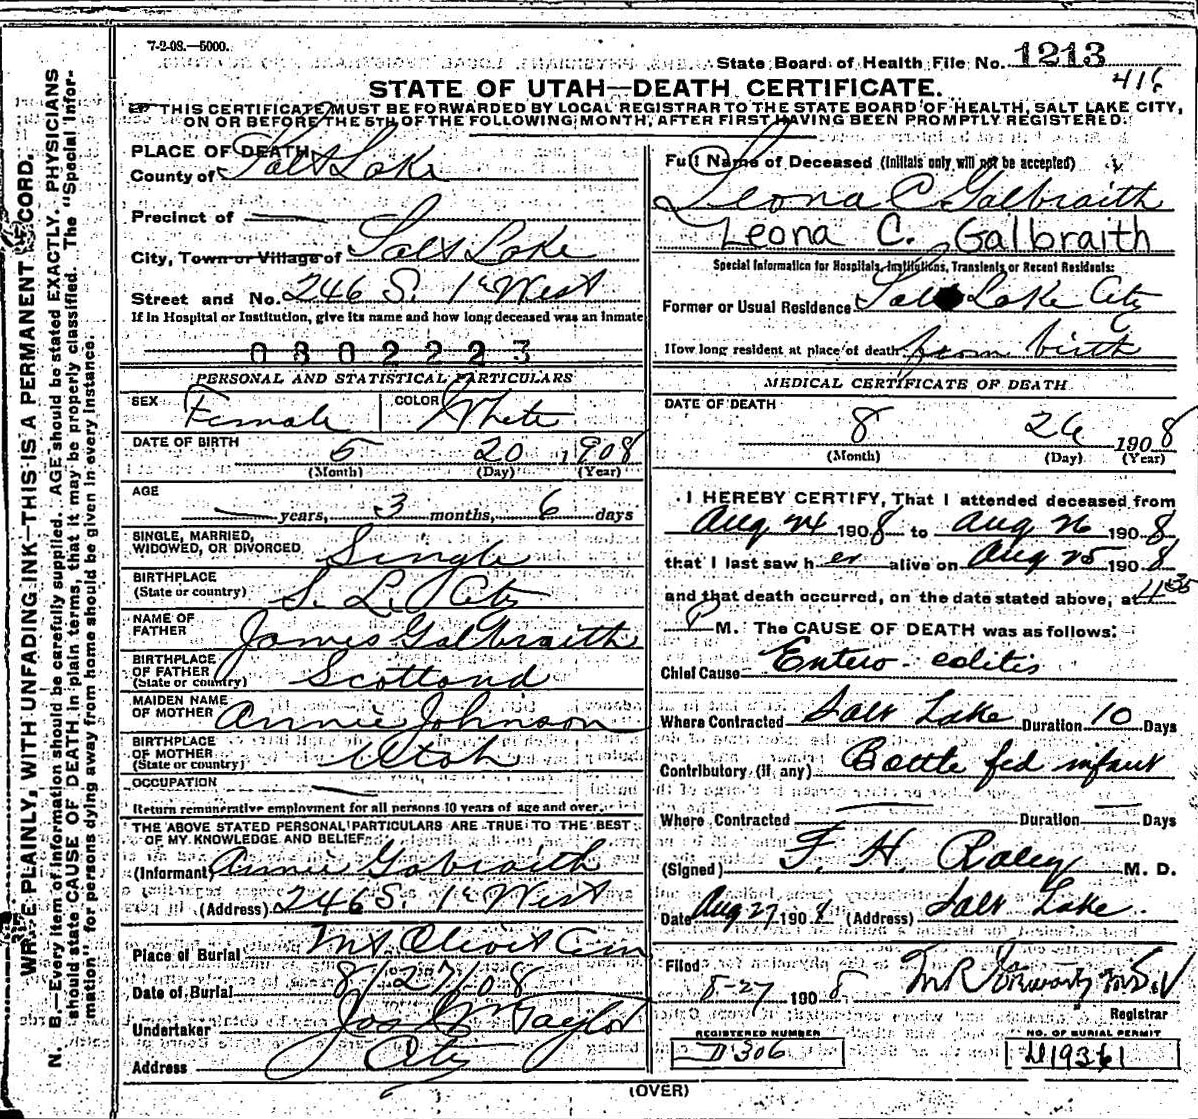 7-2-08.—5000.
State Board of Health File No. 1213
416
STATE OF UTAH—DEATH CERTIFICATE.
THIS CERTIFICATE MUST BE FORWARDED BY LOCAL REGISTRAR TO THE STATE BOARD OF HEALTH, SALT LAKE CITY,
ON OR BEFORE THE 5TH OF THE FOLLOWING MONTH, AFTER FIRST HAVING BEEN PROMPTLY REGISTERED.
WRITE PLAINLY, WITH UNFADING INK—THIS IS A PERMANENT RECORD.
N. B.—Every item of information should be carefully supplied. AGE should be stated EXACTLY. PHYSICIANS
should state CAUSE OF DEATH in plain terms, that it may be properly classified. The "Special Infor-
mation" for persons dying away from home should be given in every instance.
PLACE OF DEATH
County of Salt Lake
Precinct of —
City, Town or Village of Salt Lake
Street and No. 246 S. 1st West
If in Hospital or Institution, give its name and how long deceased was an inmate
0302223
PERSONAL AND STATISTICAL PARTICULARS
SEX Female COLOR White
DATE OF BIRTH 5 20 1908
(Month) (Day) (Year)
AGE
— years, 3 months, 6 days
SINGLE, MARRIED,
WIDOWED, OR DIVORCED Single
BIRTHPLACE
(State or country) S. L. City
NAME OF
FATHER James Galbraith
BIRTHPLACE
OF FATHER
(State or country) Scotland
MAIDEN NAME
OF MOTHER Annie Johnson
BIRTHPLACE
OF MOTHER
(State or country) Utah
OCCUPATION —
Return remunerative employment for all persons 10 years of age and over.
THE ABOVE STATED PERSONAL PARTICULARS ARE TRUE TO THE BEST
OF MY KNOWLEDGE AND BELIEF
(Informant) Annie Galbraith
(Address) 246 S. 1st West
Place of Burial Mt Olivet Cem
Date of Burial 8/27/08
Undertaker Jos Wm Taylor
Address City
Full Name of Deceased (Initials only will not be accepted)
Leona C Galbraith
Leona C. Galbraith
Special Information for Hospitals, Institutions, Transients or Recent Residents:
Former or Usual Residence Salt Lake City
How long resident at place of death from birth
MEDICAL CERTIFICATE OF DEATH
DATE OF DEATH
8 26 1908
(Month) (Day) (Year)
I HEREBY CERTIFY, That I attended deceased from
Aug 24 1908 to Aug 26 1908
that I last saw h er alive on Aug 25 1908
and that death occurred, on the date stated above, at 4 35
P M. The CAUSE OF DEATH was as follows:
Chief Cause Entero colitis
Where Contracted Salt Lake Duration 10 Days
Contributory (if any) Bottle fed infant
Where Contracted — Duration — Days
(Signed) F. H. Raley M. D.
Date Aug 27 1908 (Address) Salt Lake
Filed 8-27 1908
Registrar
REGISTERED NUMBER
D 306
NO. OF BURIAL PERMIT
19361
(OVER)